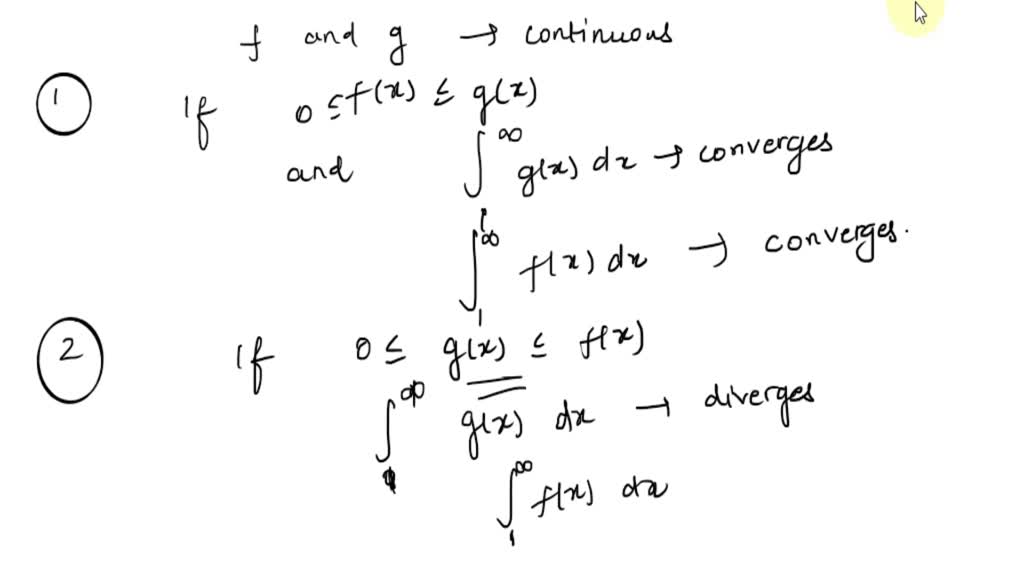 f and g → continuous
① If 0 ≤ f(x) ≤ g(x)
and ∫₁^∞ g(x) dx → converges
∫₁^∞ f(x) dx → converges.
② If 0 ≤ g(x) ≤ f(x)
∫₁^∞ g(x) dx → diverges
∫₁^∞ f(x) dx